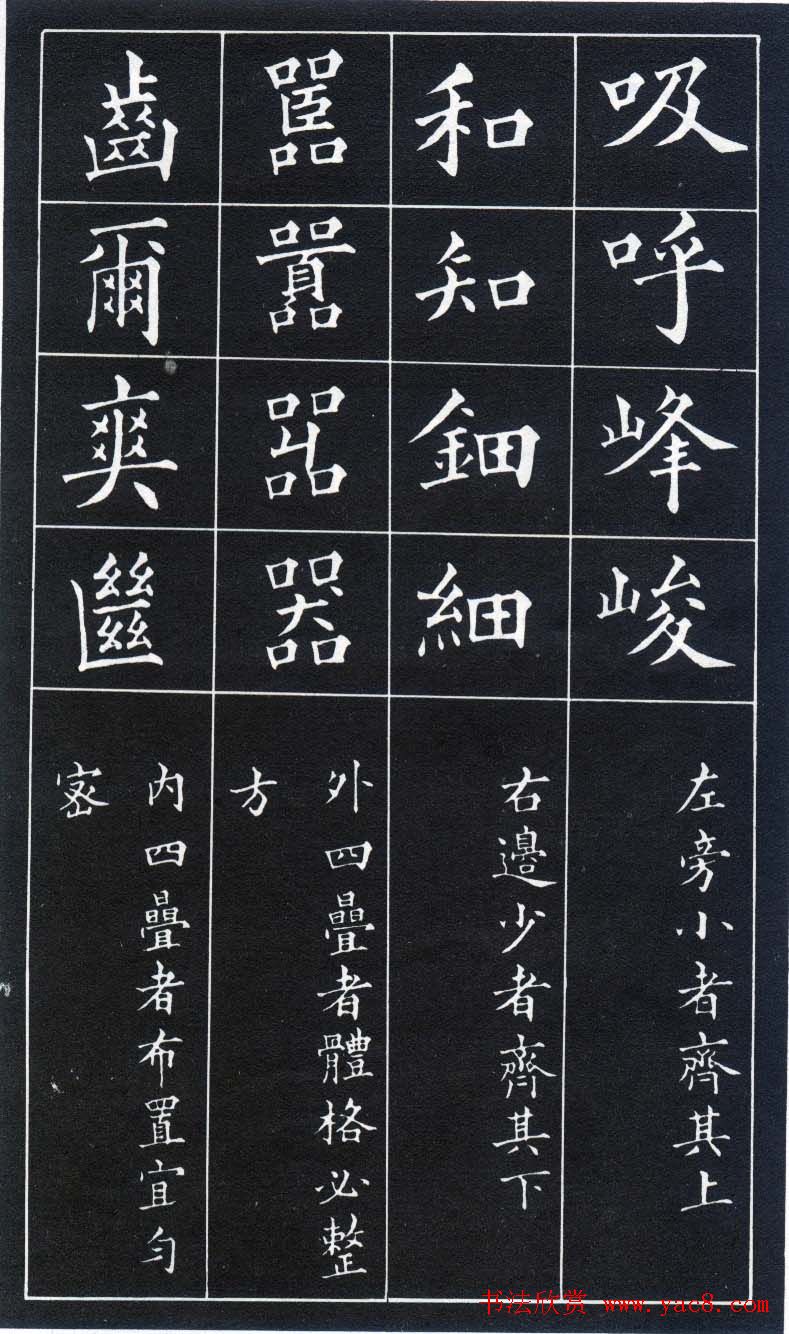 吸呼峰峻
左旁小者齊其上
和知鈿細
右邊少者齊其下
嚚囂嘂器
外四疊者體格必整
方
齒爾爽㡭
内四疊者布置宜勻
密
书法欣赏 www.yac8.com